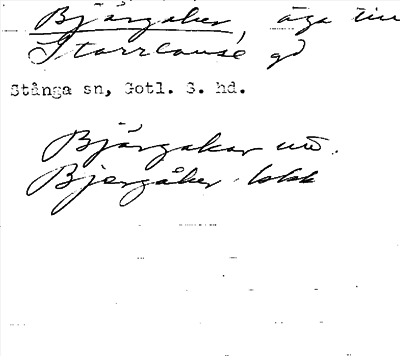 Bjärgåker, äga till
Stora Lause gd
Stånga sn, Gotl. S. hd.
Bjärgakar utt.
Bjergåker lokk